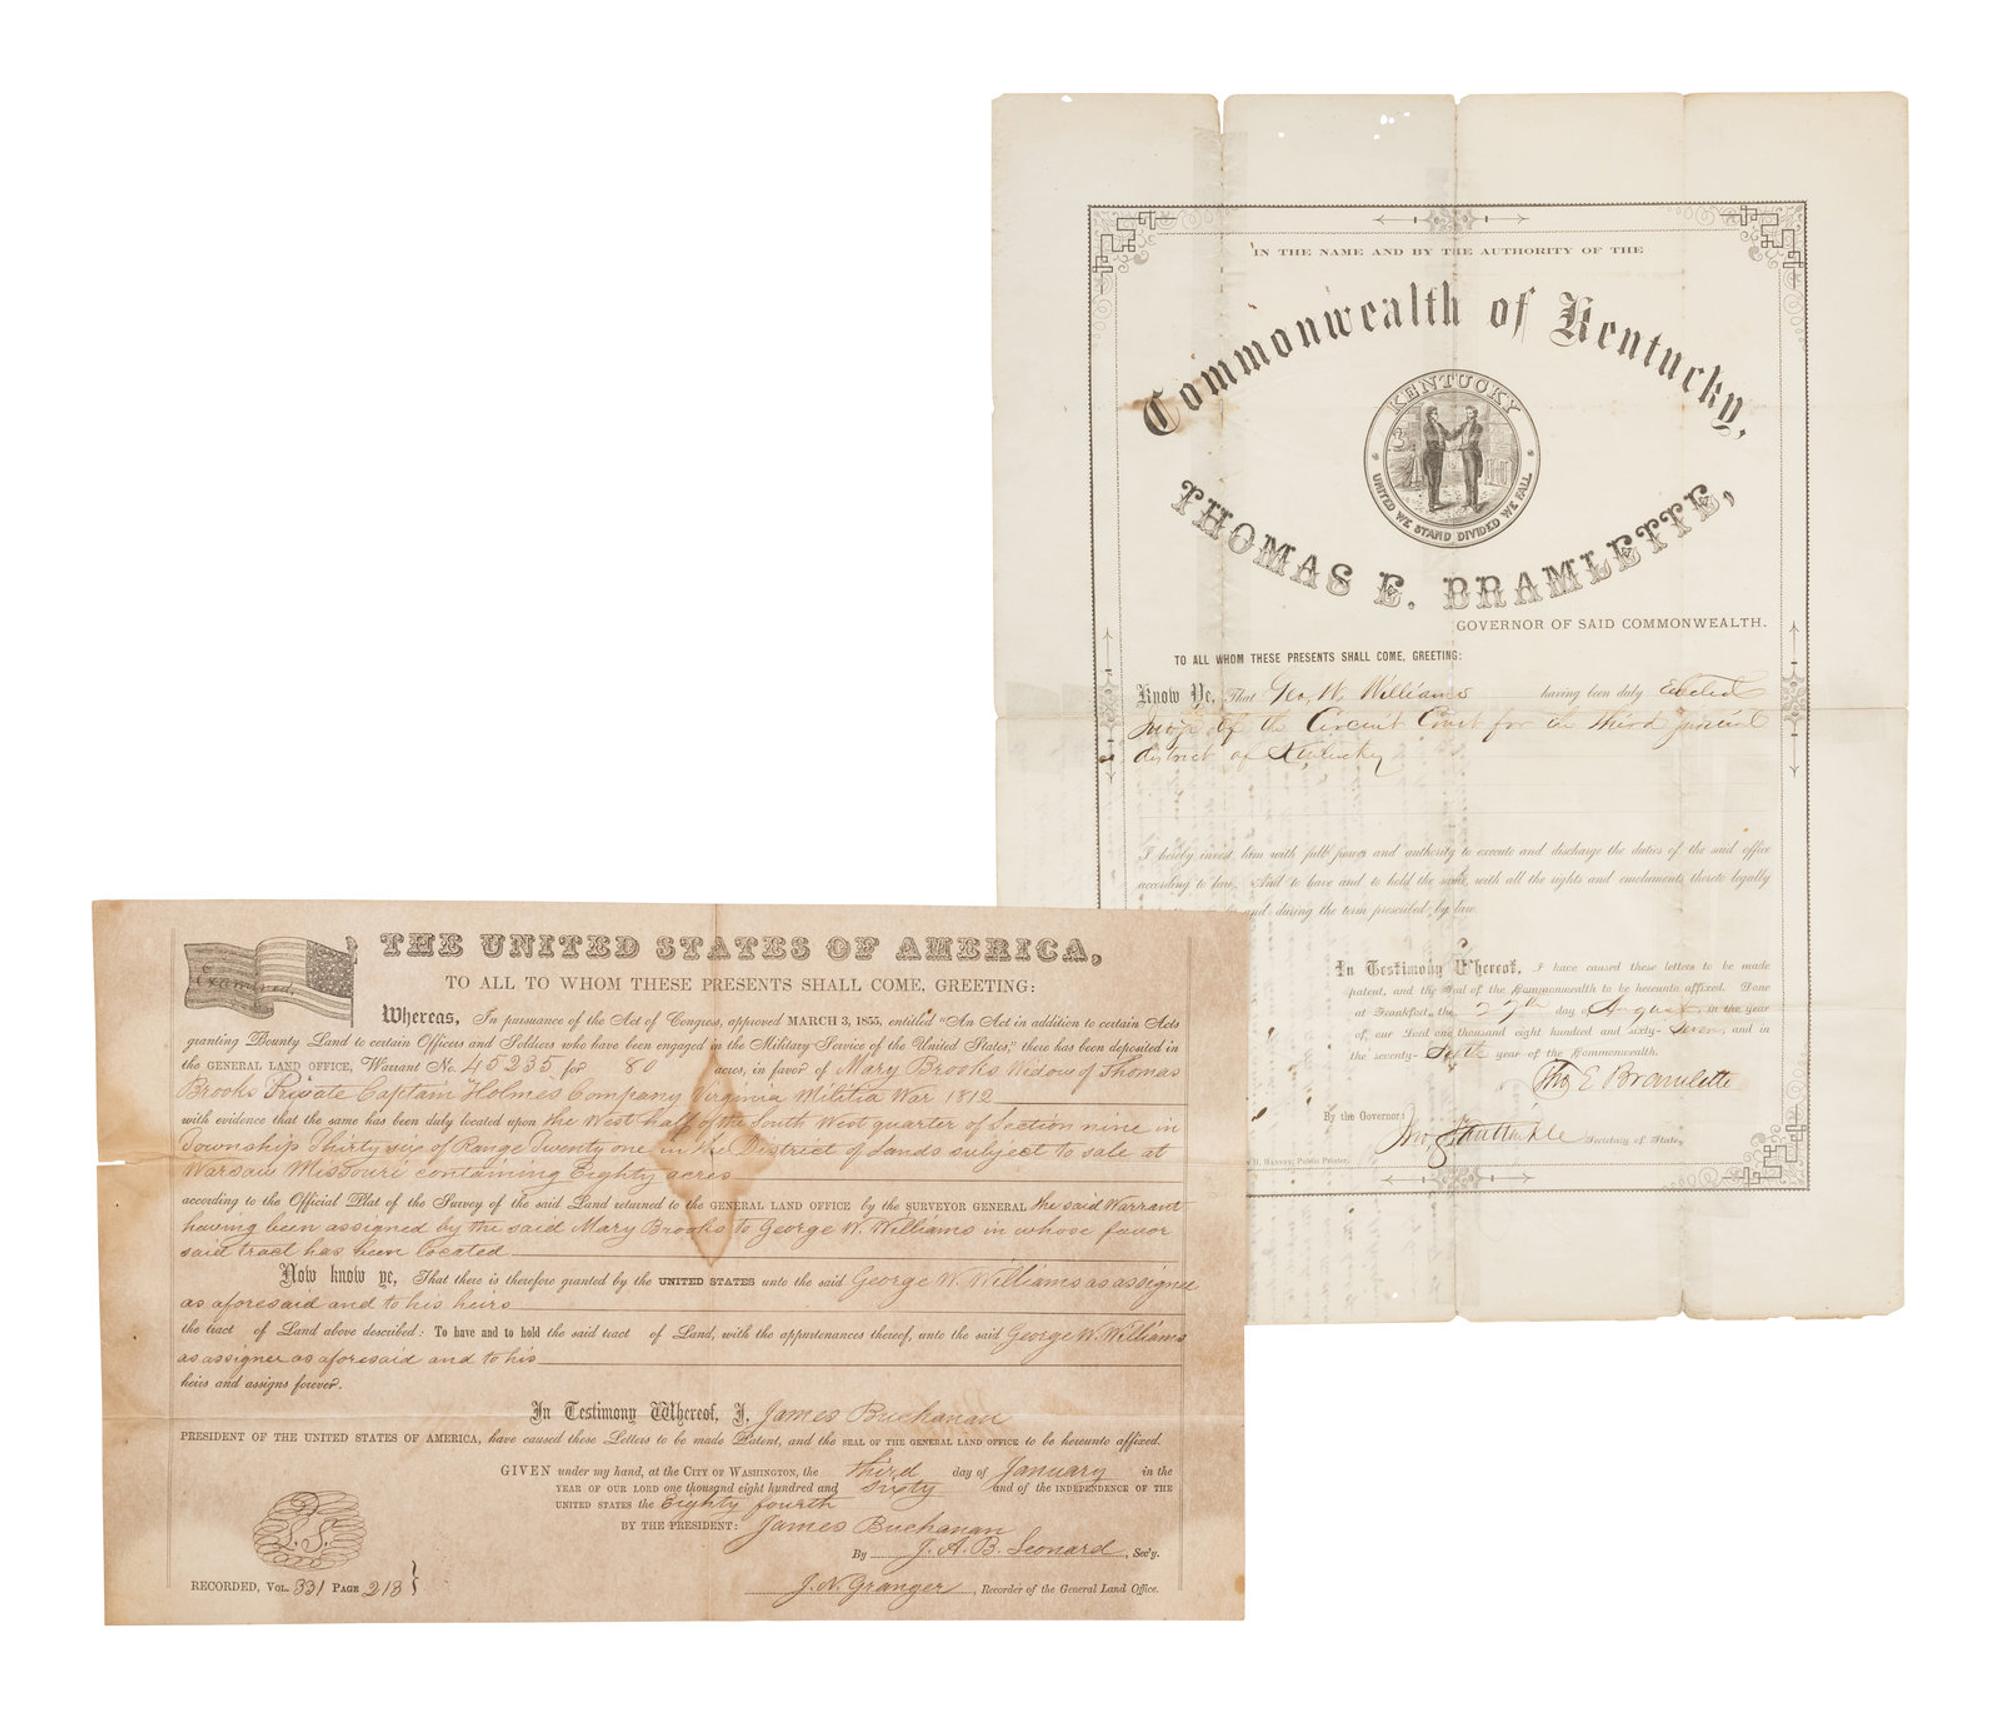 IN THE NAME AND BY THE AUTHORITY OF THE
Commonwealth of Kentucky,
KENTUCKY
UNITED WE STAND DIVIDED WE FALL
THOMAS E. BRAMLETTE,
GOVERNOR OF SAID COMMONWEALTH.
TO ALL WHOM THESE PRESENTS SHALL COME, GREETING:
Know Ye, That Geo. W. Williams having been duly Elected
Judge of the Circuit Court for the third judicial
district of Kentucky
I hereby invest him with full power and authority to execute and discharge the duties of the said office
according to law. And to have and to hold the same, with all the rights and emoluments thereto legally
and during the term prescribed by law.
In Testimony Whereof, I have caused these letters to be made
patent, and the seal of the Commonwealth to be hereunto affixed. Done
at Frankfort, the 27th day of August in the year
of our Lord one thousand eight hundred and sixty-seven, and in
the seventy-sixth year of the Commonwealth.
Tho E Bramlette
By the Governor:
Secretary of State.
Public Printer.
THE UNITED STATES OF AMERICA,
Examined.
TO ALL TO WHOM THESE PRESENTS SHALL COME, GREETING:
Whereas, In pursuance of the Act of Congress, approved MARCH 3, 1855, entitled "An Act in addition to certain Acts
granting Bounty Land to certain Officers and Soldiers who have been engaged in the Military Service of the United States," there has been deposited in
the GENERAL LAND OFFICE, Warrant No. 45235 for 80 acres, in favor of Mary Brooks Widow of Thomas
Brooks Private Captain Holmes Company Virginia Militia War 1812
with evidence that the same has been duly located upon the West half of the South West quarter of Section nine in
Township Thirty six of Range Twenty one in the District of Lands subject to sale at
Warsaw Missouri containing Eighty acres
according to the Official Plat of the Survey of the said Land returned to the GENERAL LAND OFFICE by the SURVEYOR GENERAL the said Warrant
having been assigned by the said Mary Brooks to George W. Williams in whose favor
said tract has been located
Now know ye, That there is therefore granted by the UNITED STATES unto the said George W. Williams as assignee
as aforesaid and to his heirs
the tract of Land above described: To have and to hold the said tract of Land, with the appurtenances thereof, unto the said George W. Williams
as assignee as aforesaid and to his
heirs and assigns forever.
In Testimony Whereof, I, James Buchanan
PRESIDENT OF THE UNITED STATES OF AMERICA, have caused these Letters to be made Patent, and the SEAL OF THE GENERAL LAND OFFICE to be hereunto affixed.
GIVEN under my hand, at the CITY OF WASHINGTON, the third day of January in the
YEAR OF OUR LORD one thousand eight hundred and sixty and of the INDEPENDENCE OF THE
UNITED STATES the Eighty fourth
BY THE PRESIDENT: James Buchanan
By J. A. B. Leonard, Sec'y.
L.S.
RECORDED, VOL. 331 PAGE 213
J. N. Granger, Recorder of the General Land Office.